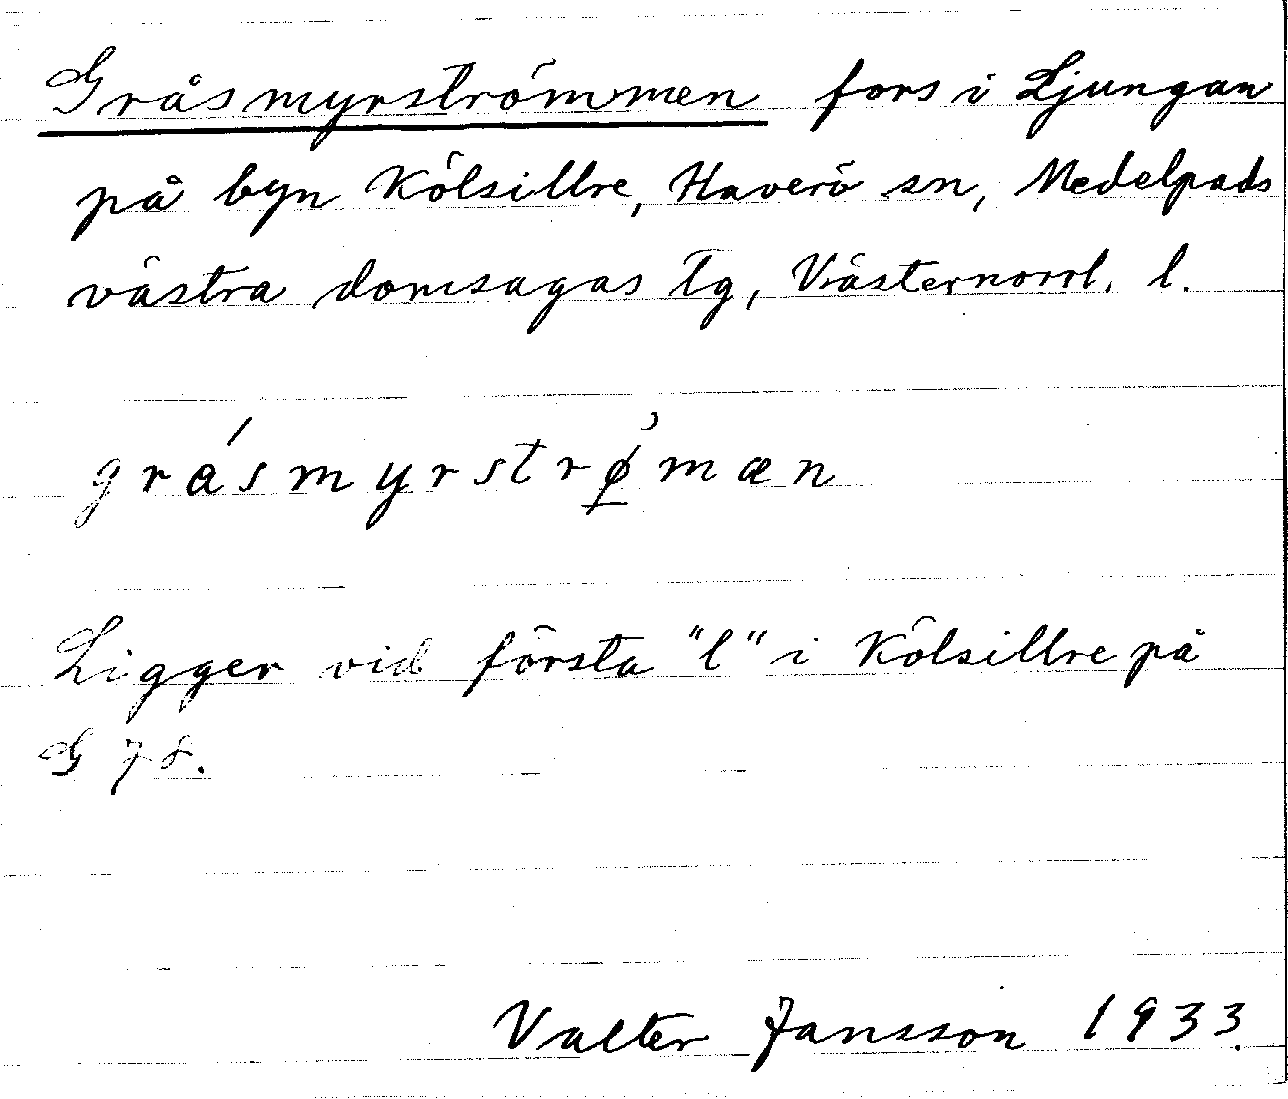 Gråsmyrströmmen fors i Ljungan
på byn Kölsillre, Haverö sn, Medelpads
västra domsagas tg, Västernorrl. l.
grásmyrstrø̱mæn
Ligger vid första "l" i Kölsillre på
G 78.
Valter Jansson 1933.